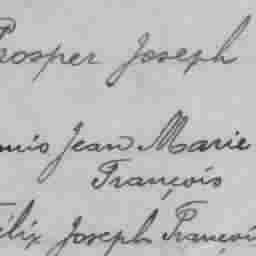 Prosper Joseph
ouis Jean Marie
François
Félix Joseph Françoi